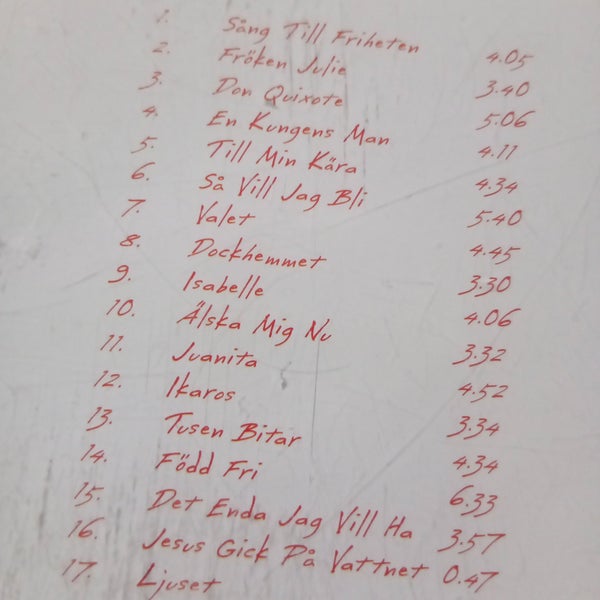 1. Sång Till Friheten 4.05
2. Fröken Julie 3.40
3. Don Quixote 5.06
4. En Kungens Man 4.11
5. Till Min Kära 4.34
6. Så Vill Jag Bli 5.40
7. Valet 4.45
8. Dockhemmet 3.30
9. Isabelle 4.06
10. Älska Mig Nu 3.32
11. Juanita 4.52
12. Ikaros 3.34
13. Tusen Bitar 4.34
14. Född Fri 6.33
15. Det Enda Jag Vill Ha 3.57
16. Jesus Gick På Vattnet 0.47
17. Ljuset